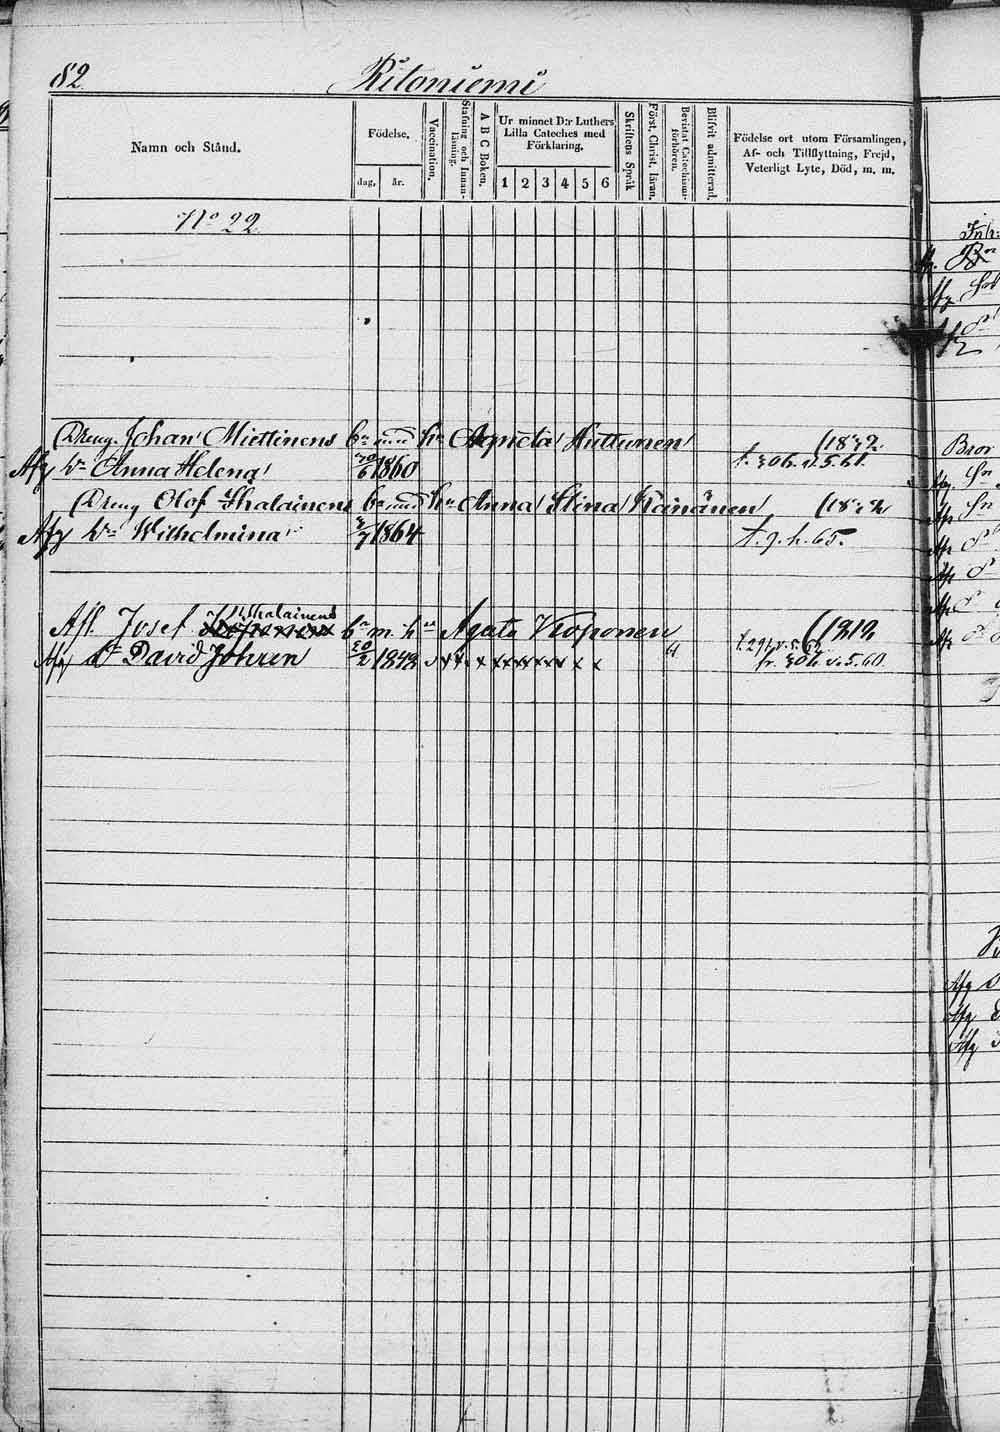 82 Ritoniemi
Namn och Stånd.
Födelse.
dag. år.
Vaccination.
Stafning och Innanläsning.
A B C Boken.
Ur minnet D:r Luthers
Lilla Cateches med
Förklaring.
1 2 3 4 5 6
Skriftens Språk
Först. Christ. läran.
Bevistat Catechismiförhören.
Blifvit admitterad.
Födelse ort utom Församlingen,
Af- och Tillflyttning, Frejd,
Veterligt Lyte, Död, m. m.
No 22
Dreng. Johan Miettinens bn med hn Agneta Huttunen
Afg Dr Anna Helena 1860
Dreng Olof Ihalainens bn med hn Anna Stina Kainänen
Afg Dr Wilhelmina 7 1864 f. g. h. 65.
Afl. Josef Ihalainens bn m. hn Agata Kroponen
Afg Sn David Johren 20/2 1848 x x x x x x x x
fr. 306. v. 5. 60.
Bror
Afg
Afg
Afg